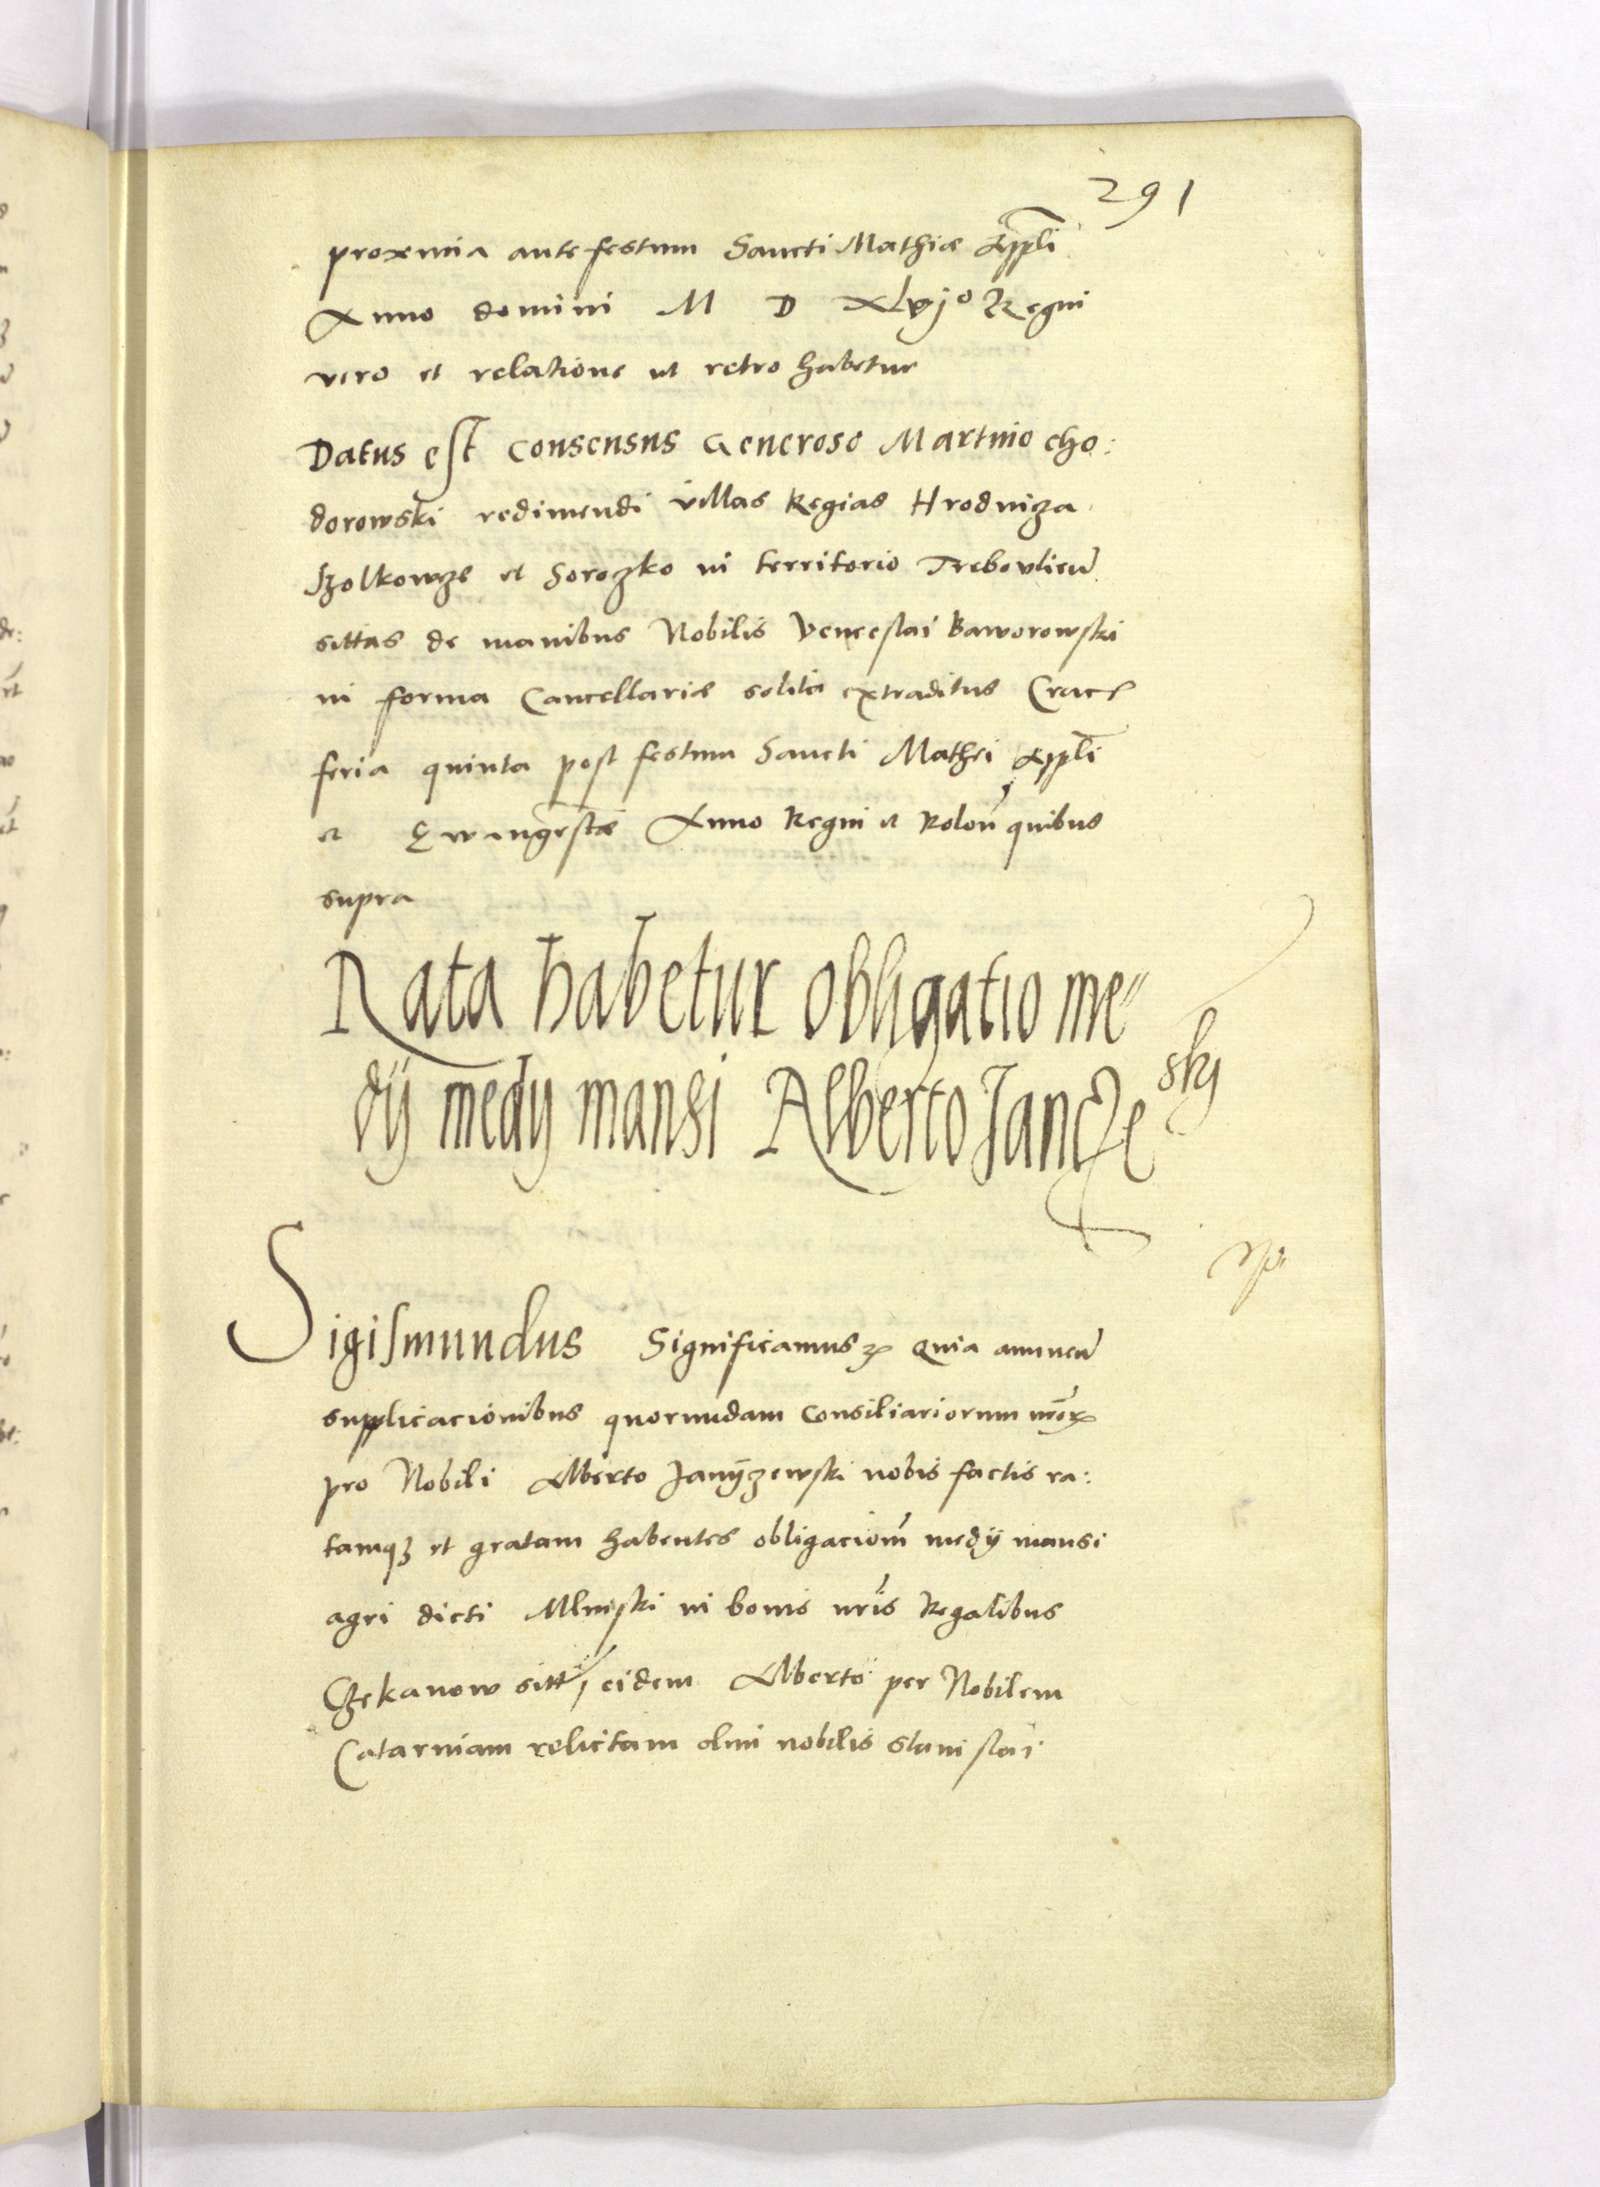 291
proxima ante festum Sancti Mathiæ Appli
Anno domini M D XLvjo Regni
vero et relatione ut retro habetur
Datus est Consensus Generoso Martino Cho:
dorowski redimendi villas Regias Hrodnicza
Szolkowcze et Soroczko in territorio Trebowlien
sittas de manibus Nobilis Venceslai Baworowski
in forma Cancellariæ solita extraditus Crac
feria quinta post festum Sancti Mathei Appli
et Ewangestæ Anno Regni et Rolon quibus
supra
Rata habetur obligatio me"
dij medij mansi Alberto Jancze
sky
Sigismundus Significamus Quia annuen
supplicacionibus quorundam Consiliariorum nror
pro Nobili Alberto Janÿczewski nobis factis ra:
tamq3 et gratam habentes obligaciom medÿ mansi
agri dicti Mlinski in bonis nris Regalibus
Czekanow sitt eidem Alberto per Nobilem
Catarinam relictam olim nobilis Stanislai